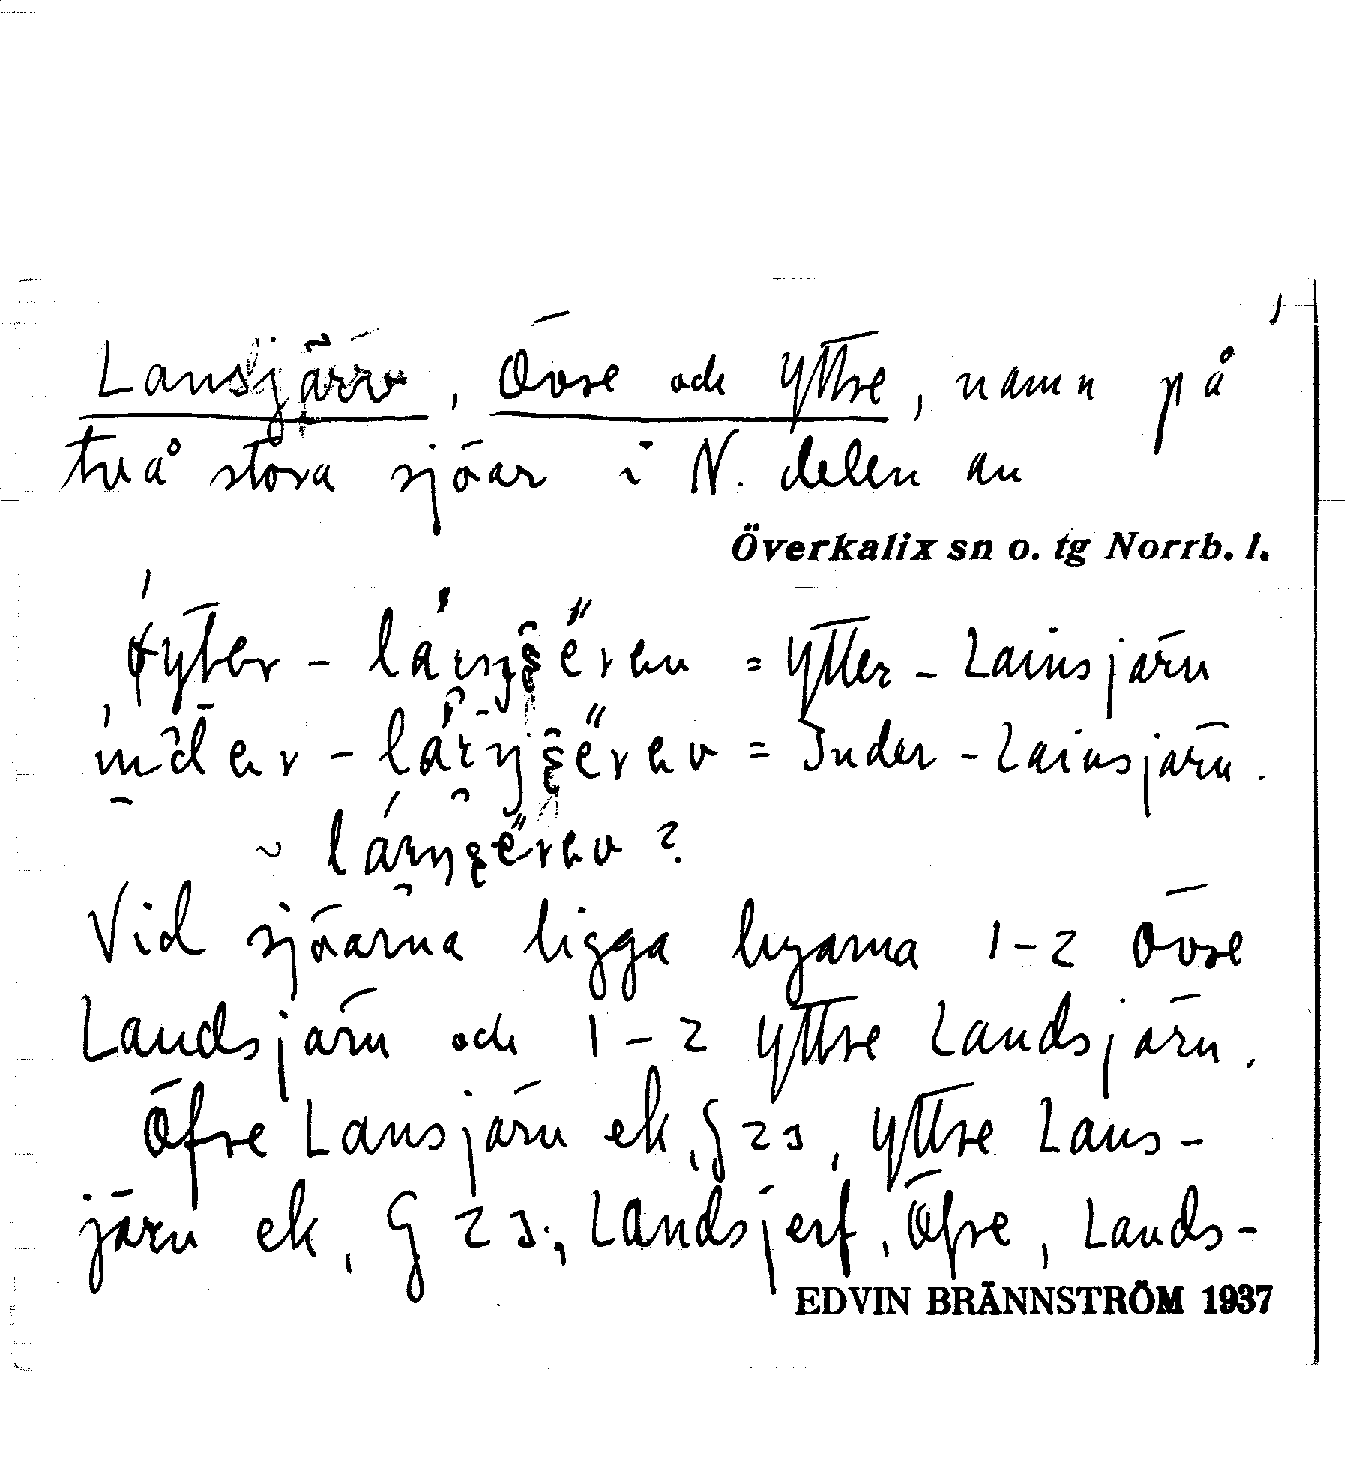 Lansjärv, Övre och Yttre, namn på
två stora sjöar i N. delen av
Överkalix sn o. tg Norrb. l.
= Ytter - Lainsjärv
= Inder - Lainsjärv.
Vid sjöarna ligga byarna 1-2 Övre
Landsjärv och 1-2 Yttre Landsjärv.
Öfre Lansjärv ek, G 23, Yttre Lans-
järv ek, G 23; Landsjerf, Öfre, Lands-
EDVIN BRÄNNSTRÖM 1937